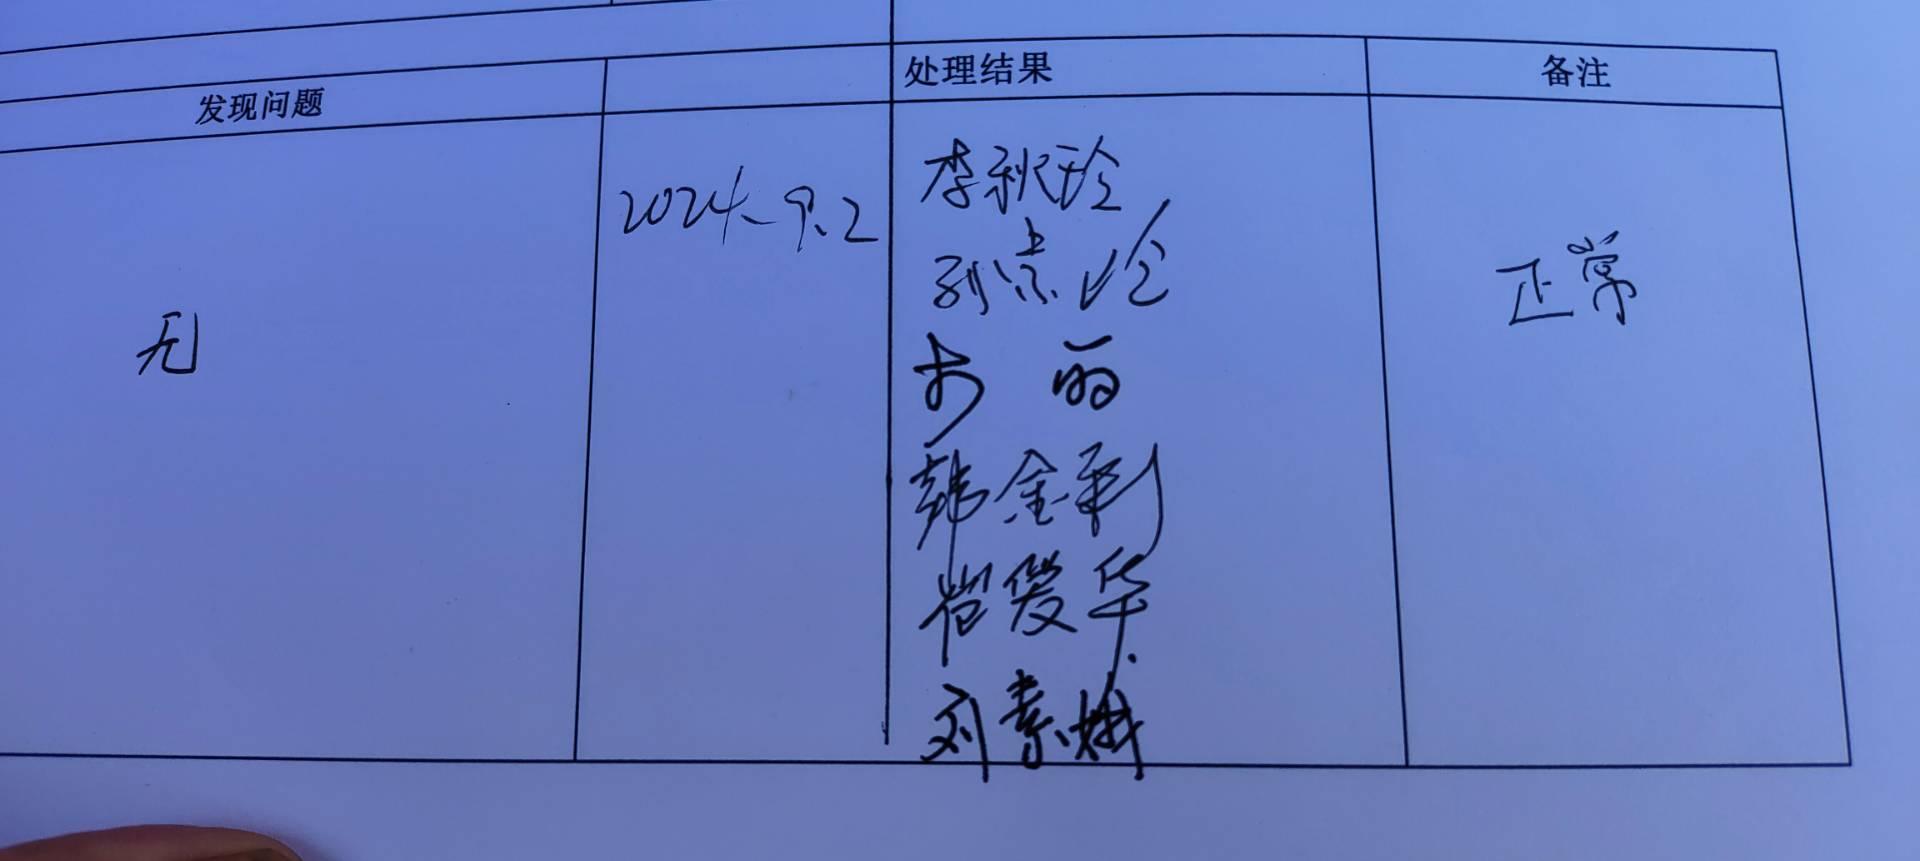 发现问题
处理结果
备注
无
2024.9.2
李秋玲
正常
韩金利
崔爱华
刘素娥